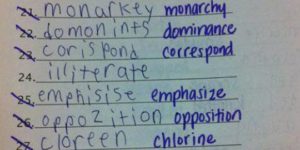 21. monarkey monarchy
22. domonints dominance
23. corispond correspond
24. illiterate
25. emphisise emphasize
26. oppozition opposition
cloreen chlorine